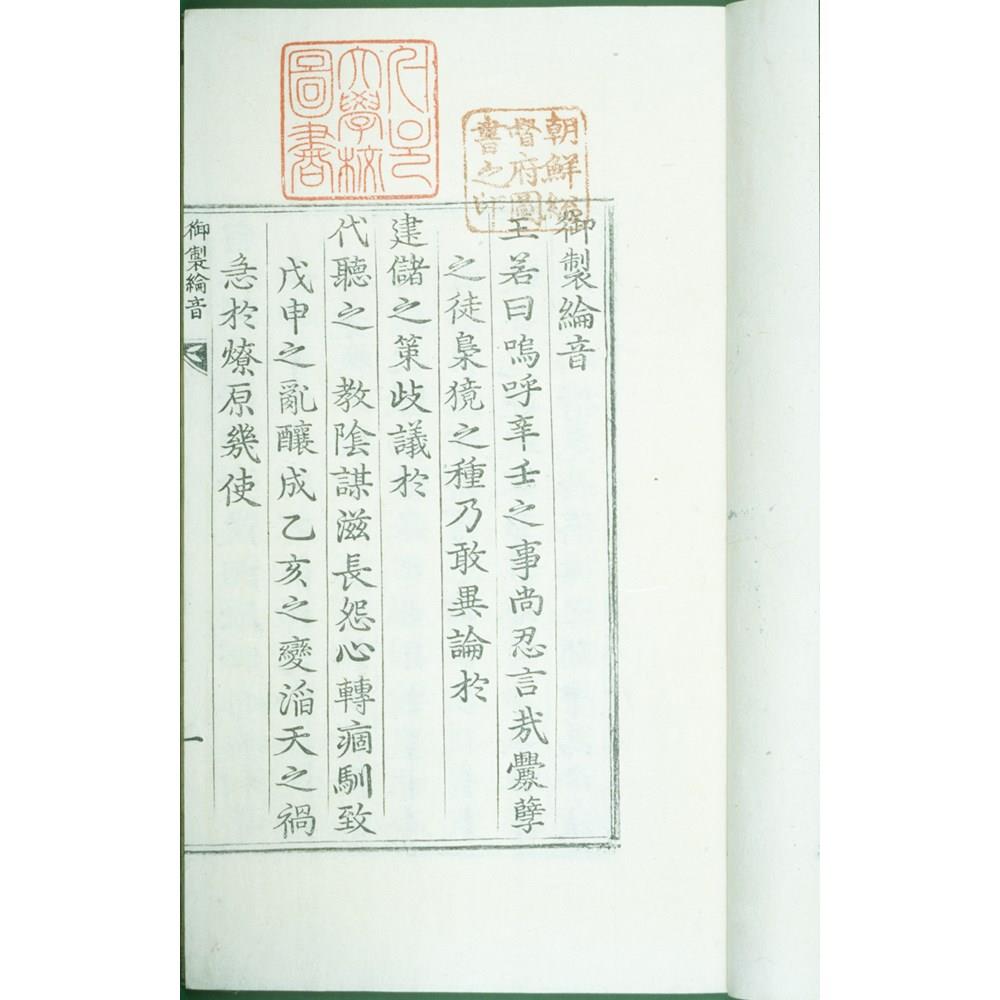 朝鮮總
督府圖
書之印
大學校
圖書
御製綸音
王若曰嗚呼辛壬之事尚忍言哉釁孽
之徒梟獍之種乃敢異論於
建儲之策歧議於
代聽之 教陰謀滋長怨心轉痼馴致
戊申之亂釀成乙亥之變滔天之禍
急於燎原幾使
御製綸音
一